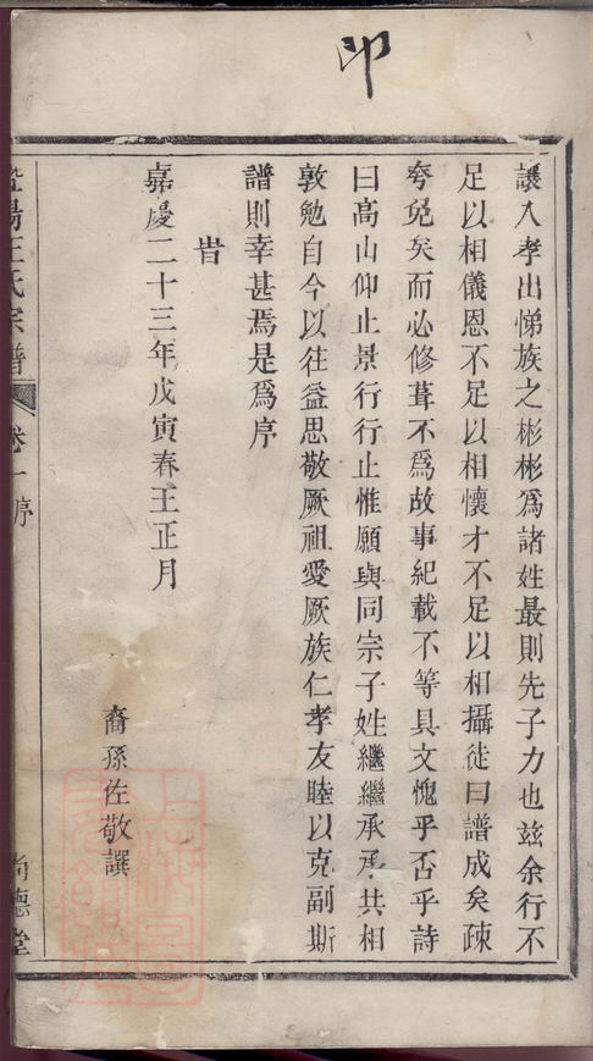 印
讓入孝出悌族之彬彬爲諸姓最則先子力也玆余行不
足以相儀恩不足以相懷才不足以相攝徒曰譜成矣疎
夸免矣而必修葺不爲故事紀載不等具文愧乎否乎詩
曰高山仰止景行行止惟願與同宗子姓繼繼承承共相
敦勉自今以往益思敬厥祖愛厥族仁孝友睦以克副斯
譜則幸甚焉是爲序
旹
嘉慶二十三年戊寅春王正月
裔孫佐敬譔
暨陽王氏宗譜 卷一 序 尚德堂